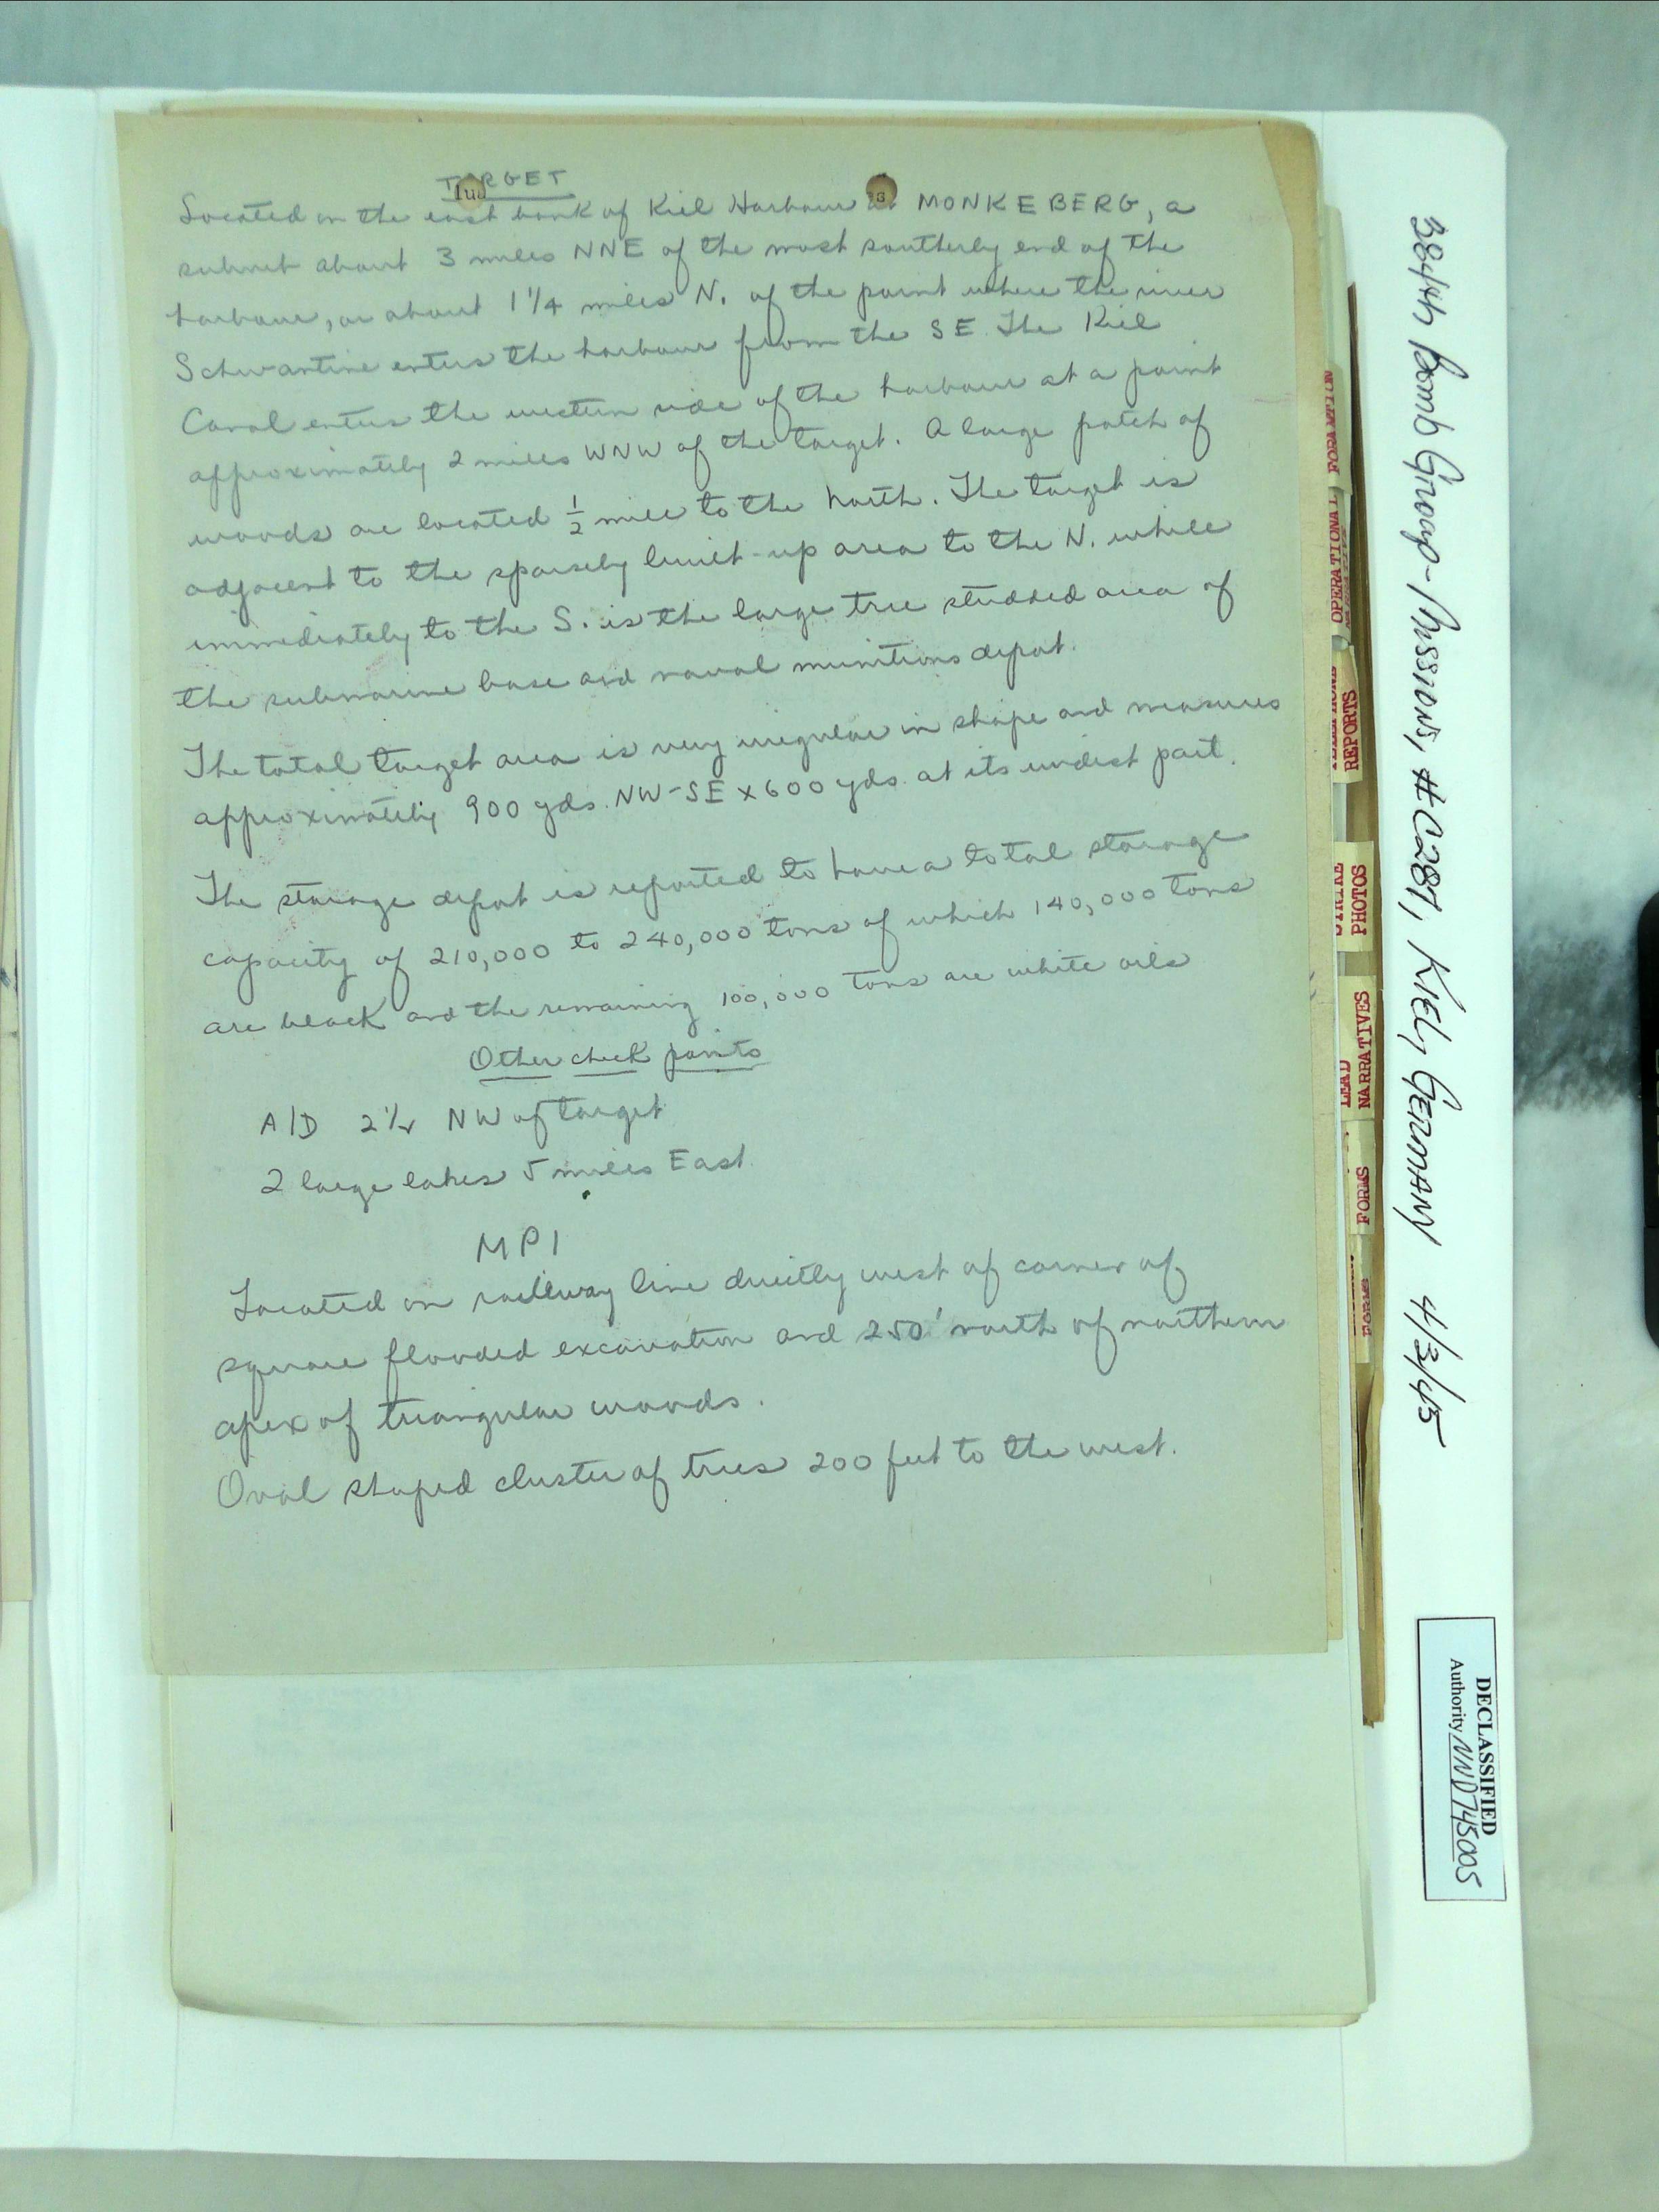 TARGET
Located on the east bank of Kiel Harbour at MONKEBERG, a
suburb about 3 miles NNE of the most southerly end of the
harbour, or about 1 1/4 miles N. of the point where the river
Schwantine enters the harbour from the SE. The Kiel
Canal enters the western side of the harbour at a point
approximately 2 miles WNW of the target. A large patch of
woods are located 1/2 mile to the North. The target is
adjacent to the sparsely built-up area to the N. while
immediately to the S. is the large tree studded area of
the submarine base and naval munitions depot.
The total target area is very irregular in shape and measures
approximately 900 yds. NW-SE x 600 yds. at its widest part.
The storage depot is reported to have a total storage
capacity of 210,000 to 240,000 tons of which 140,000 tons
are black and the remaining 100,000 tons are white oils
Other check points
A/D 2 1/2 NW of target
2 large lakes 5 miles East.
MPI
Located on railway line directly west of corner of
square flooded excavation and 250' north of northern
apex of triangular woods.
Oval shaped cluster of trees 200 feet to the west.
384th Bomb Group-Missions, #C281, KIEL, GERMANY 4/3/45
FORMATION
OPERATIONAL
REPORTS
STRIKE
PHOTOS
LEAD
NARRATIVES
FORMS
FORMS
DECLASSIFIED
Authority NND745005